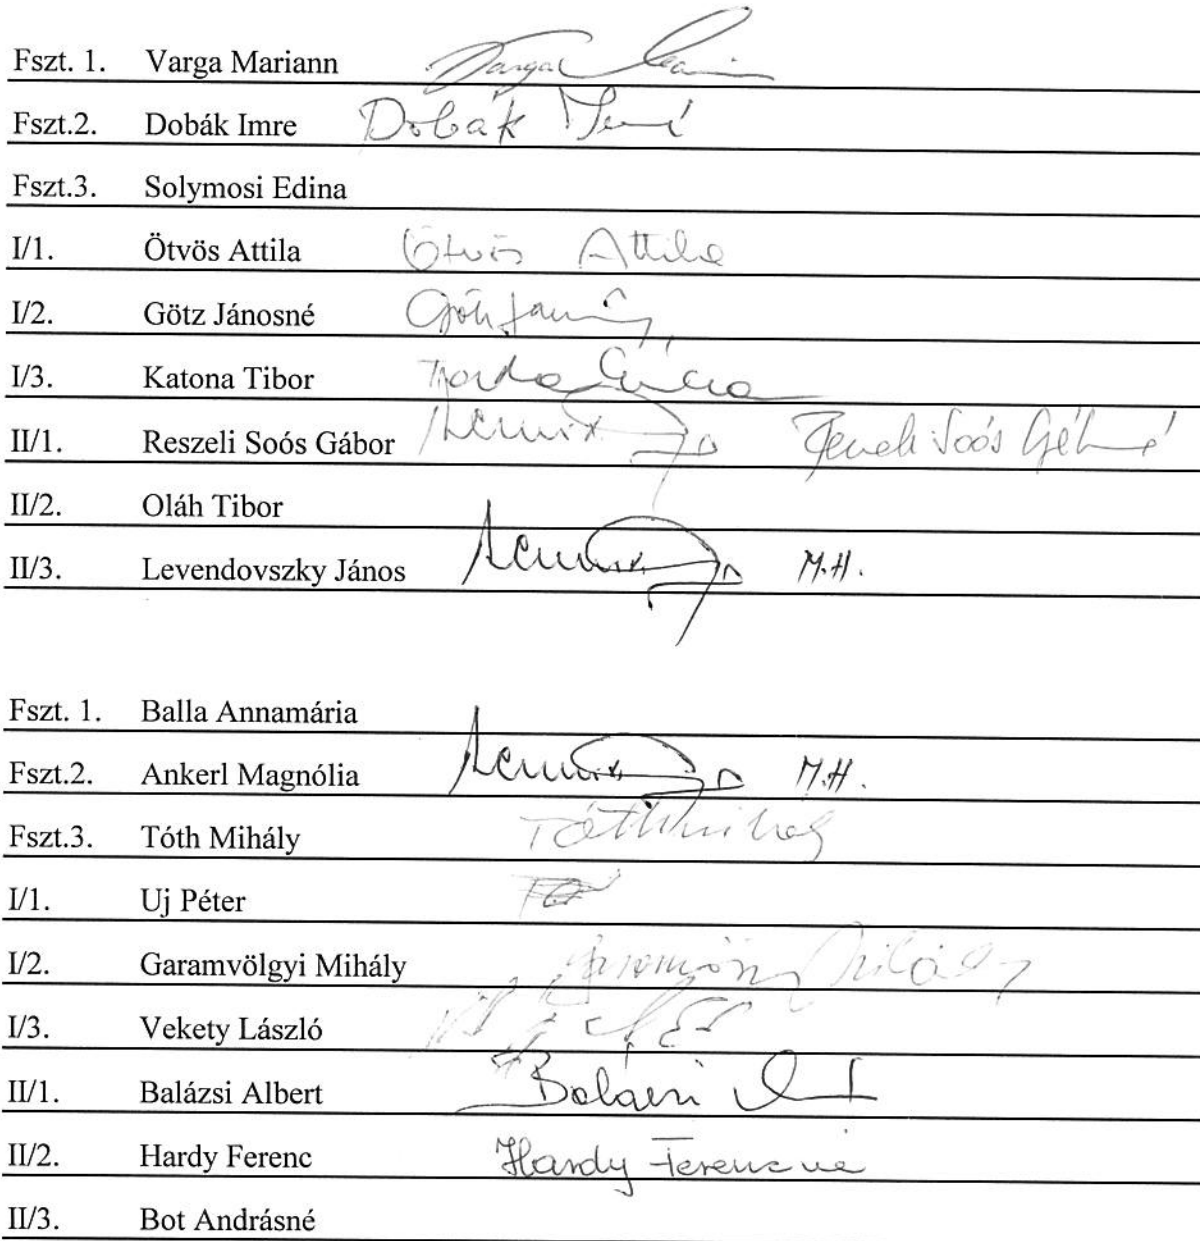 Fszt. 1. Varga Mariann Varga
Fszt.2. Dobák Imre Dobák Imré
Fszt.3. Solymosi Edina
I/1. Ötvös Attila Ötvös Attila
I/2. Götz Jánosné
I/3. Katona Tibor
II/1. Reszeli Soós Gábor Soós
II/2. Oláh Tibor
II/3. Levendovszky János M.H.
Fszt. 1. Balla Annamária
Fszt.2. Ankerl Magnólia M.H.
Fszt.3. Tóth Mihály Tóth Mihály
I/1. Uj Péter
I/2. Garamvölgyi Mihály
I/3. Vekety László
II/1. Balázsi Albert Balázsi
II/2. Hardy Ferenc Hardy Ferencné
II/3. Bot Andrásné